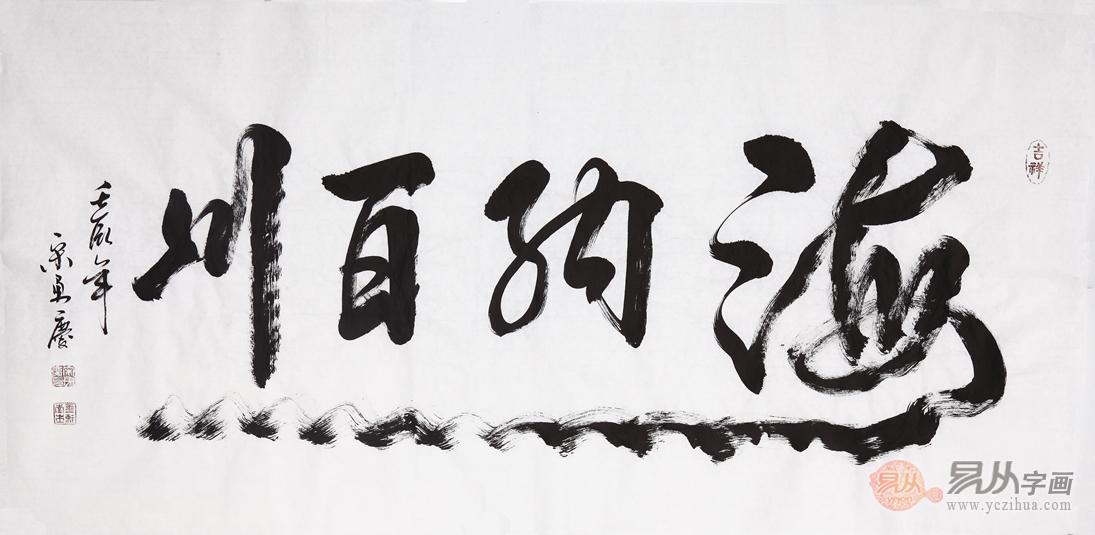 吉祥
海纳百川
壬辰年
易从
易从字画
www.yczihua.com